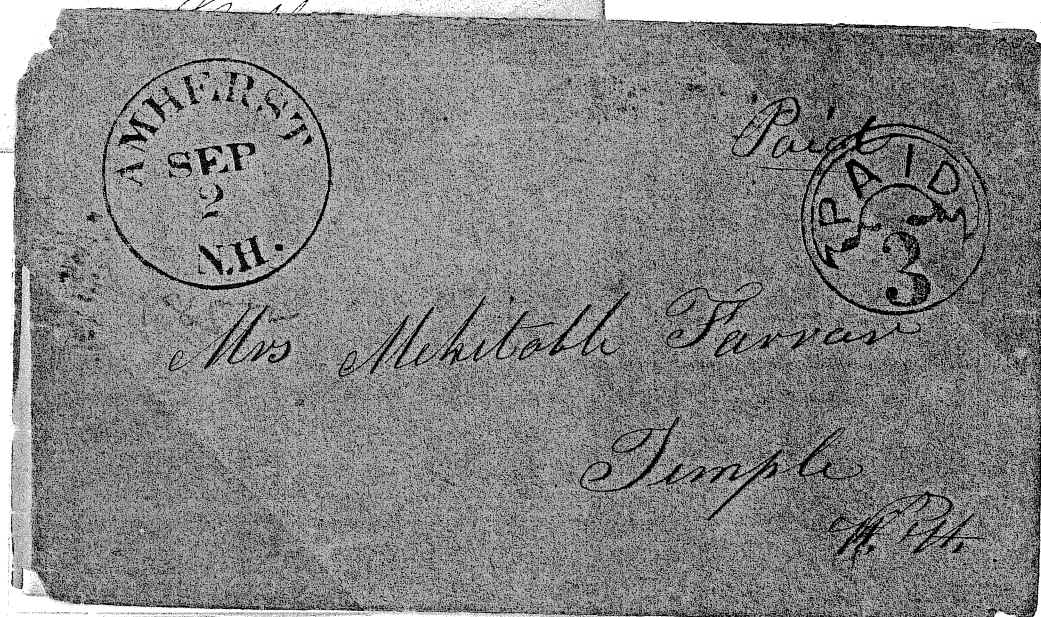 AMHERST
SEP
2
N.H.
Paid
PAID
3
Mrs Mehitable Farrar
Temple
N. H.